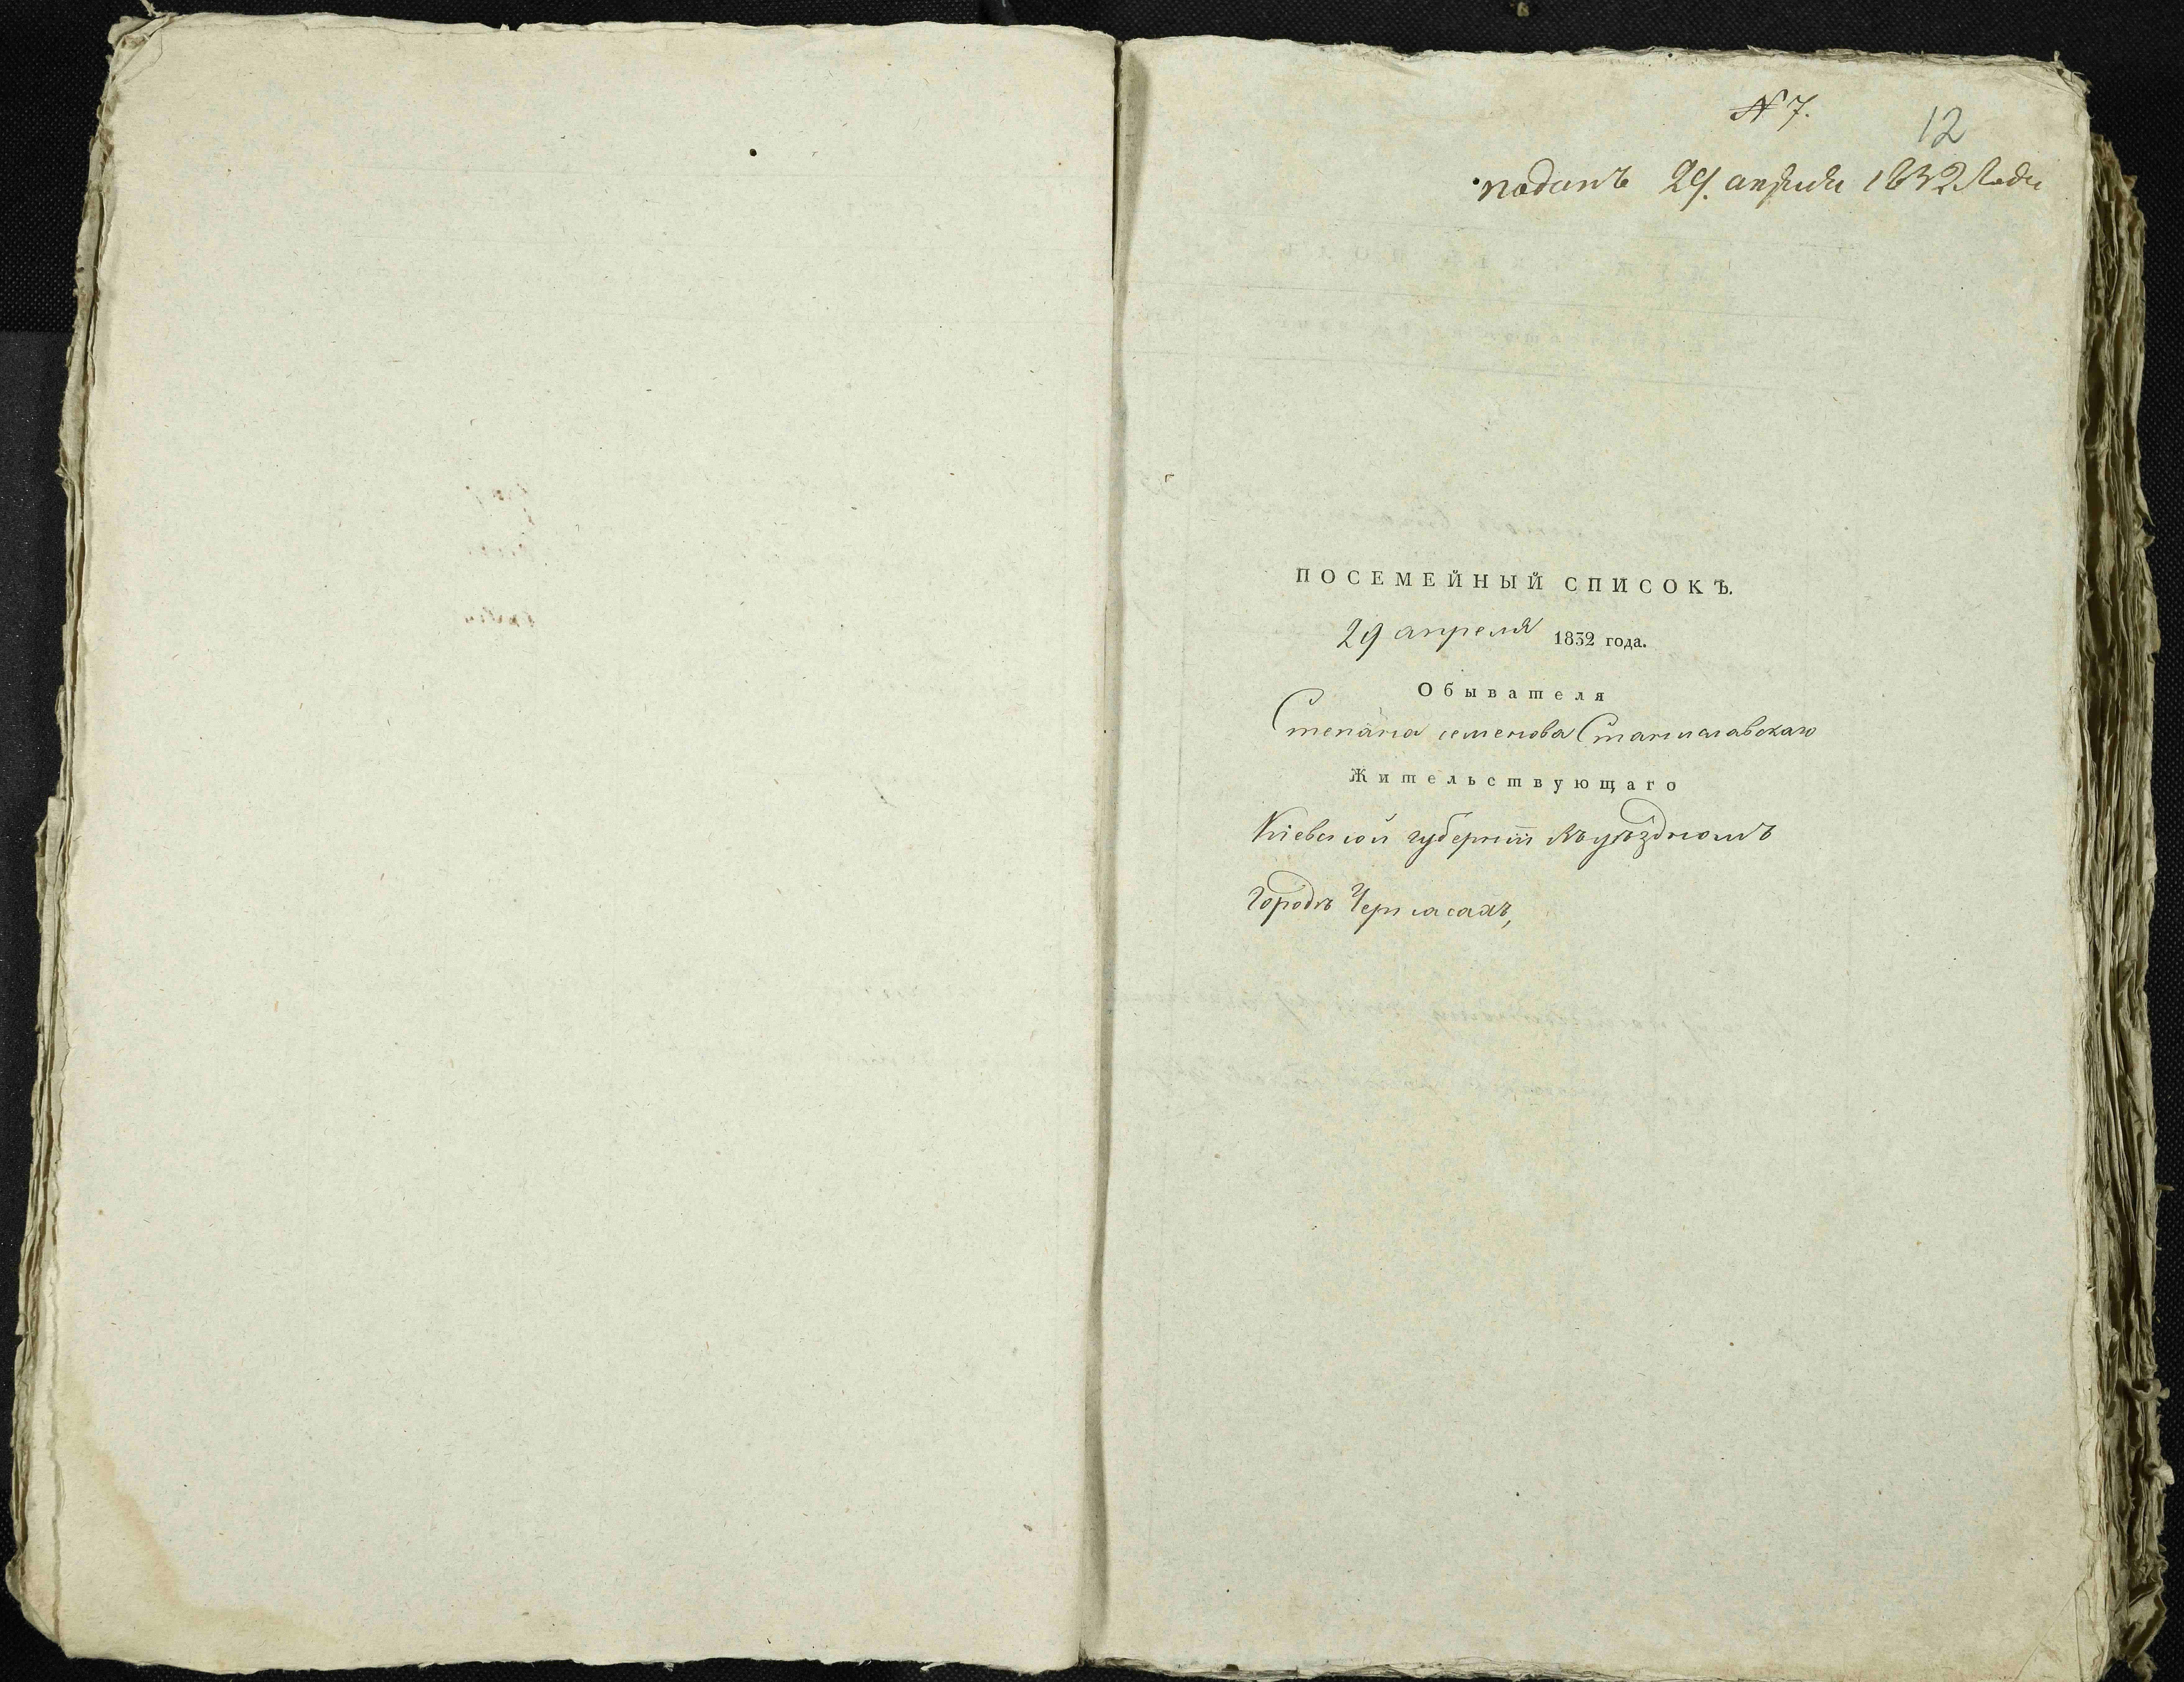 № 7.
12
поданъ 29. апреля 1832 года
ПОСЕМЕЙНЫЙ СПИСОКЪ.
29 апреля 1832 года.
Обывателя
Степана семенова Станиславскаго
Жительствующаго
Кіевской губерніи въ уѣздномъ
городѣ Черкасахъ,